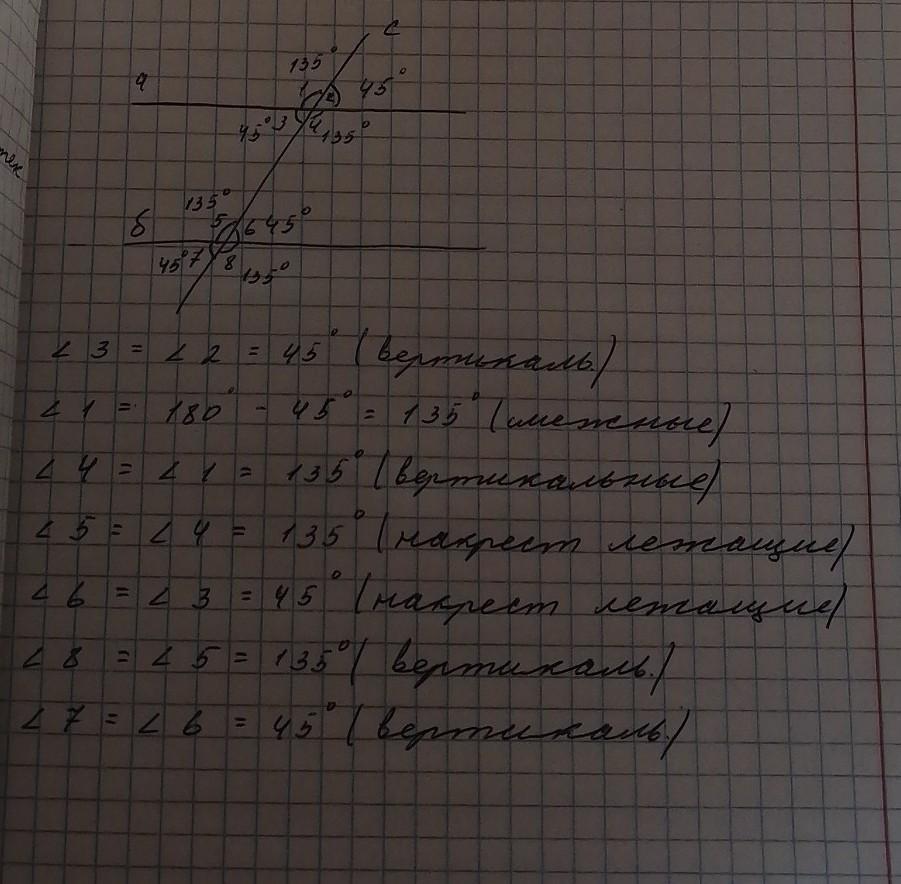 c
135°
а 1 2 45°
45° 3 4 135°
135°
б 5 6 45°
45° 7 8 135°
∠ 3 = ∠ 2 = 45° (вертикаль.)
∠ 1 = 180° - 45° = 135° (смежные)
∠ 4 = ∠ 1 = 135° (вертикальные)
∠ 5 = ∠ 4 = 135° (накрест лежащие)
∠ 6 = ∠ 3 = 45° (накрест лежащие)
∠ 8 = ∠ 5 = 135° (вертикаль.)
∠ 7 = ∠ 6 = 45° (вертикаль.)